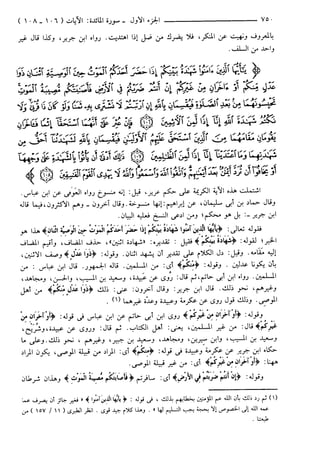 ٧٥٠ ــــــــــ الجزء الأول ـ سورة المائدة: الآيات (١٠٦ ـ ١٠٨)
بالمعروف ونهيت عن المنكر، فلا يضرك من ضل إذا اهتديت. رواه ابن جرير، وكذا قال غير
واحد من السلف.
﴿ يَٰٓأَيُّهَا ٱلَّذِينَ ءَامَنُوا۟ شَهَٰدَةُ بَيْنِكُمْ إِذَا حَضَرَ أَحَدَكُمُ ٱلْمَوْتُ حِينَ ٱلْوَصِيَّةِ ٱثْنَانِ ذَوَا
عَدْلٍ مِّنكُمْ أَوْ ءَاخَرَانِ مِنْ غَيْرِكُمْ إِنْ أَنتُمْ ضَرَبْتُمْ فِى ٱلْأَرْضِ فَأَصَٰبَتْكُم مُّصِيبَةُ ٱلْمَوْتِ
تَحْبِسُونَهُمَا مِنۢ بَعْدِ ٱلصَّلَوٰةِ فَيُقْسِمَانِ بِٱللَّهِ إِنِ ٱرْتَبْتُمْ لَا نَشْتَرِى بِهِۦ ثَمَنًا وَلَوْ كَانَ ذَا قُرْبَىٰ وَلَا
نَكْتُمُ شَهَٰدَةَ ٱللَّهِ إِنَّآ إِذًا لَّمِنَ ٱلْـَٔاثِمِينَ ۝ فَإِنْ عُثِرَ عَلَىٰٓ أَنَّهُمَا ٱسْتَحَقَّآ إِثْمًا فَـَٔاخَرَانِ
يَقُومَانِ مَقَامَهُمَا مِنَ ٱلَّذِينَ ٱسْتَحَقَّ عَلَيْهِمُ ٱلْأَوْلَيَٰنِ فَيُقْسِمَانِ بِٱللَّهِ لَشَهَٰدَتُنَآ أَحَقُّ مِن
شَهَٰدَتِهِمَا وَمَا ٱعْتَدَيْنَآ إِنَّآ إِذًا لَّمِنَ ٱلظَّٰلِمِينَ ۝ ذَٰلِكَ أَدْنَىٰٓ أَن يَأْتُوا۟ بِٱلشَّهَٰدَةِ عَلَىٰ وَجْهِهَآ
أَوْ يَخَافُوٓا۟ أَن تُرَدَّ أَيْمَٰنٌۢ بَعْدَ أَيْمَٰنِهِمْ وَٱتَّقُوا۟ ٱللَّهَ وَٱسْمَعُوا۟ وَٱللَّهُ لَا يَهْدِى ٱلْقَوْمَ ٱلْفَٰسِقِينَ ۝ ﴾
اشتملت هذه الآية الكريمة على حكم عزيز، قيل: إنه منسوخ رواه العَوْفى عن ابن عباس.
وقال حماد بن أبى سليمان، عن إبراهيم: إنها منسوخة. وقال آخرون ـ وهم الأكثرون، فيما قاله
ابن جرير ـ: بل هو محكم؛ ومن ادعى النسخ فعليه البيان.
فقوله تعالى: ﴿ يا أيها الذين آمنوا شهادة بينكم إذا حضر أحدكم الموت حين الوصية اثنان ﴾ هذا هو
الخبر؛ لقوله: ﴿ شهادة بينكم ﴾ فقيل: تقديره: «شهادة اثنين»، حذف المضاف، وأقيم المضاف
إليه مقامه. وقيل: دل الكلام على تقدير أن يشهد اثنان. وقوله: ﴿ ذوا عدل ﴾ وصف الاثنين،
بأن يكونا عدلين . وقوله: ﴿ منكم ﴾ أى: من المسلمين. قاله الجمهور. قال ابن عباس : من
المسلمين. رواه ابن أبى حاتم، ثم قال: روى عن عبيدة، وسعيد بن المسيب، والحسن، ومجاهد،
وغيرهم، نحو ذلك. قال ابن جرير: وقال آخرون: عنى: ذلك ﴿ ذوا عدل منكم ﴾ من أهل
الموصى. وذلك قول روى عن عكرمة وعبيدة وعدّة غيرهما (١)
وقوله: ﴿ أو آخران من غيركم ﴾ روى ابن أبى حاتم عن ابن عباس فى قوله: ﴿ أو آخران من
غيركم ﴾ قال: من غير المسلمين، يعنى: أهل الكتاب. ثم قال: وروى عن عبيدة، وشريح،
وسعيد بن المسيب، وابن سيرين، ومجاهد، وسعيد بن جبير، وغيرهم ، نحو ذلك. وعلى ما
حكاه ابن جرير عن عكرمة وعبيدة فى قوله: ﴿ منكم ﴾ أى: المراد من قبيلة الموصى، يكون المراد
ههنا: ﴿ أو آخران من غيركم ﴾ أى: من غير قبيلة الموصى.
وقوله: ﴿ إن أنتم ضربتم فى الأرض ﴾ أى: سافرتم ﴿ فأصابتكم مصيبة الموت ﴾ وهذان شرطان
(١) ثم رد ذلك بأن الله عم المؤمنين بخطابهم بذلك ، فى قوله : ﴿ يا أيها الذين آمنوا ﴾ « فغير جائز أن يصرف عما
عمه الله إلى الخصوص إلا بحجة يجب التسليم لها » . وهذا كلام جيد قوى . انظر الطبرى ( ١١ / ١٥٧ ) من
طبعتنا .